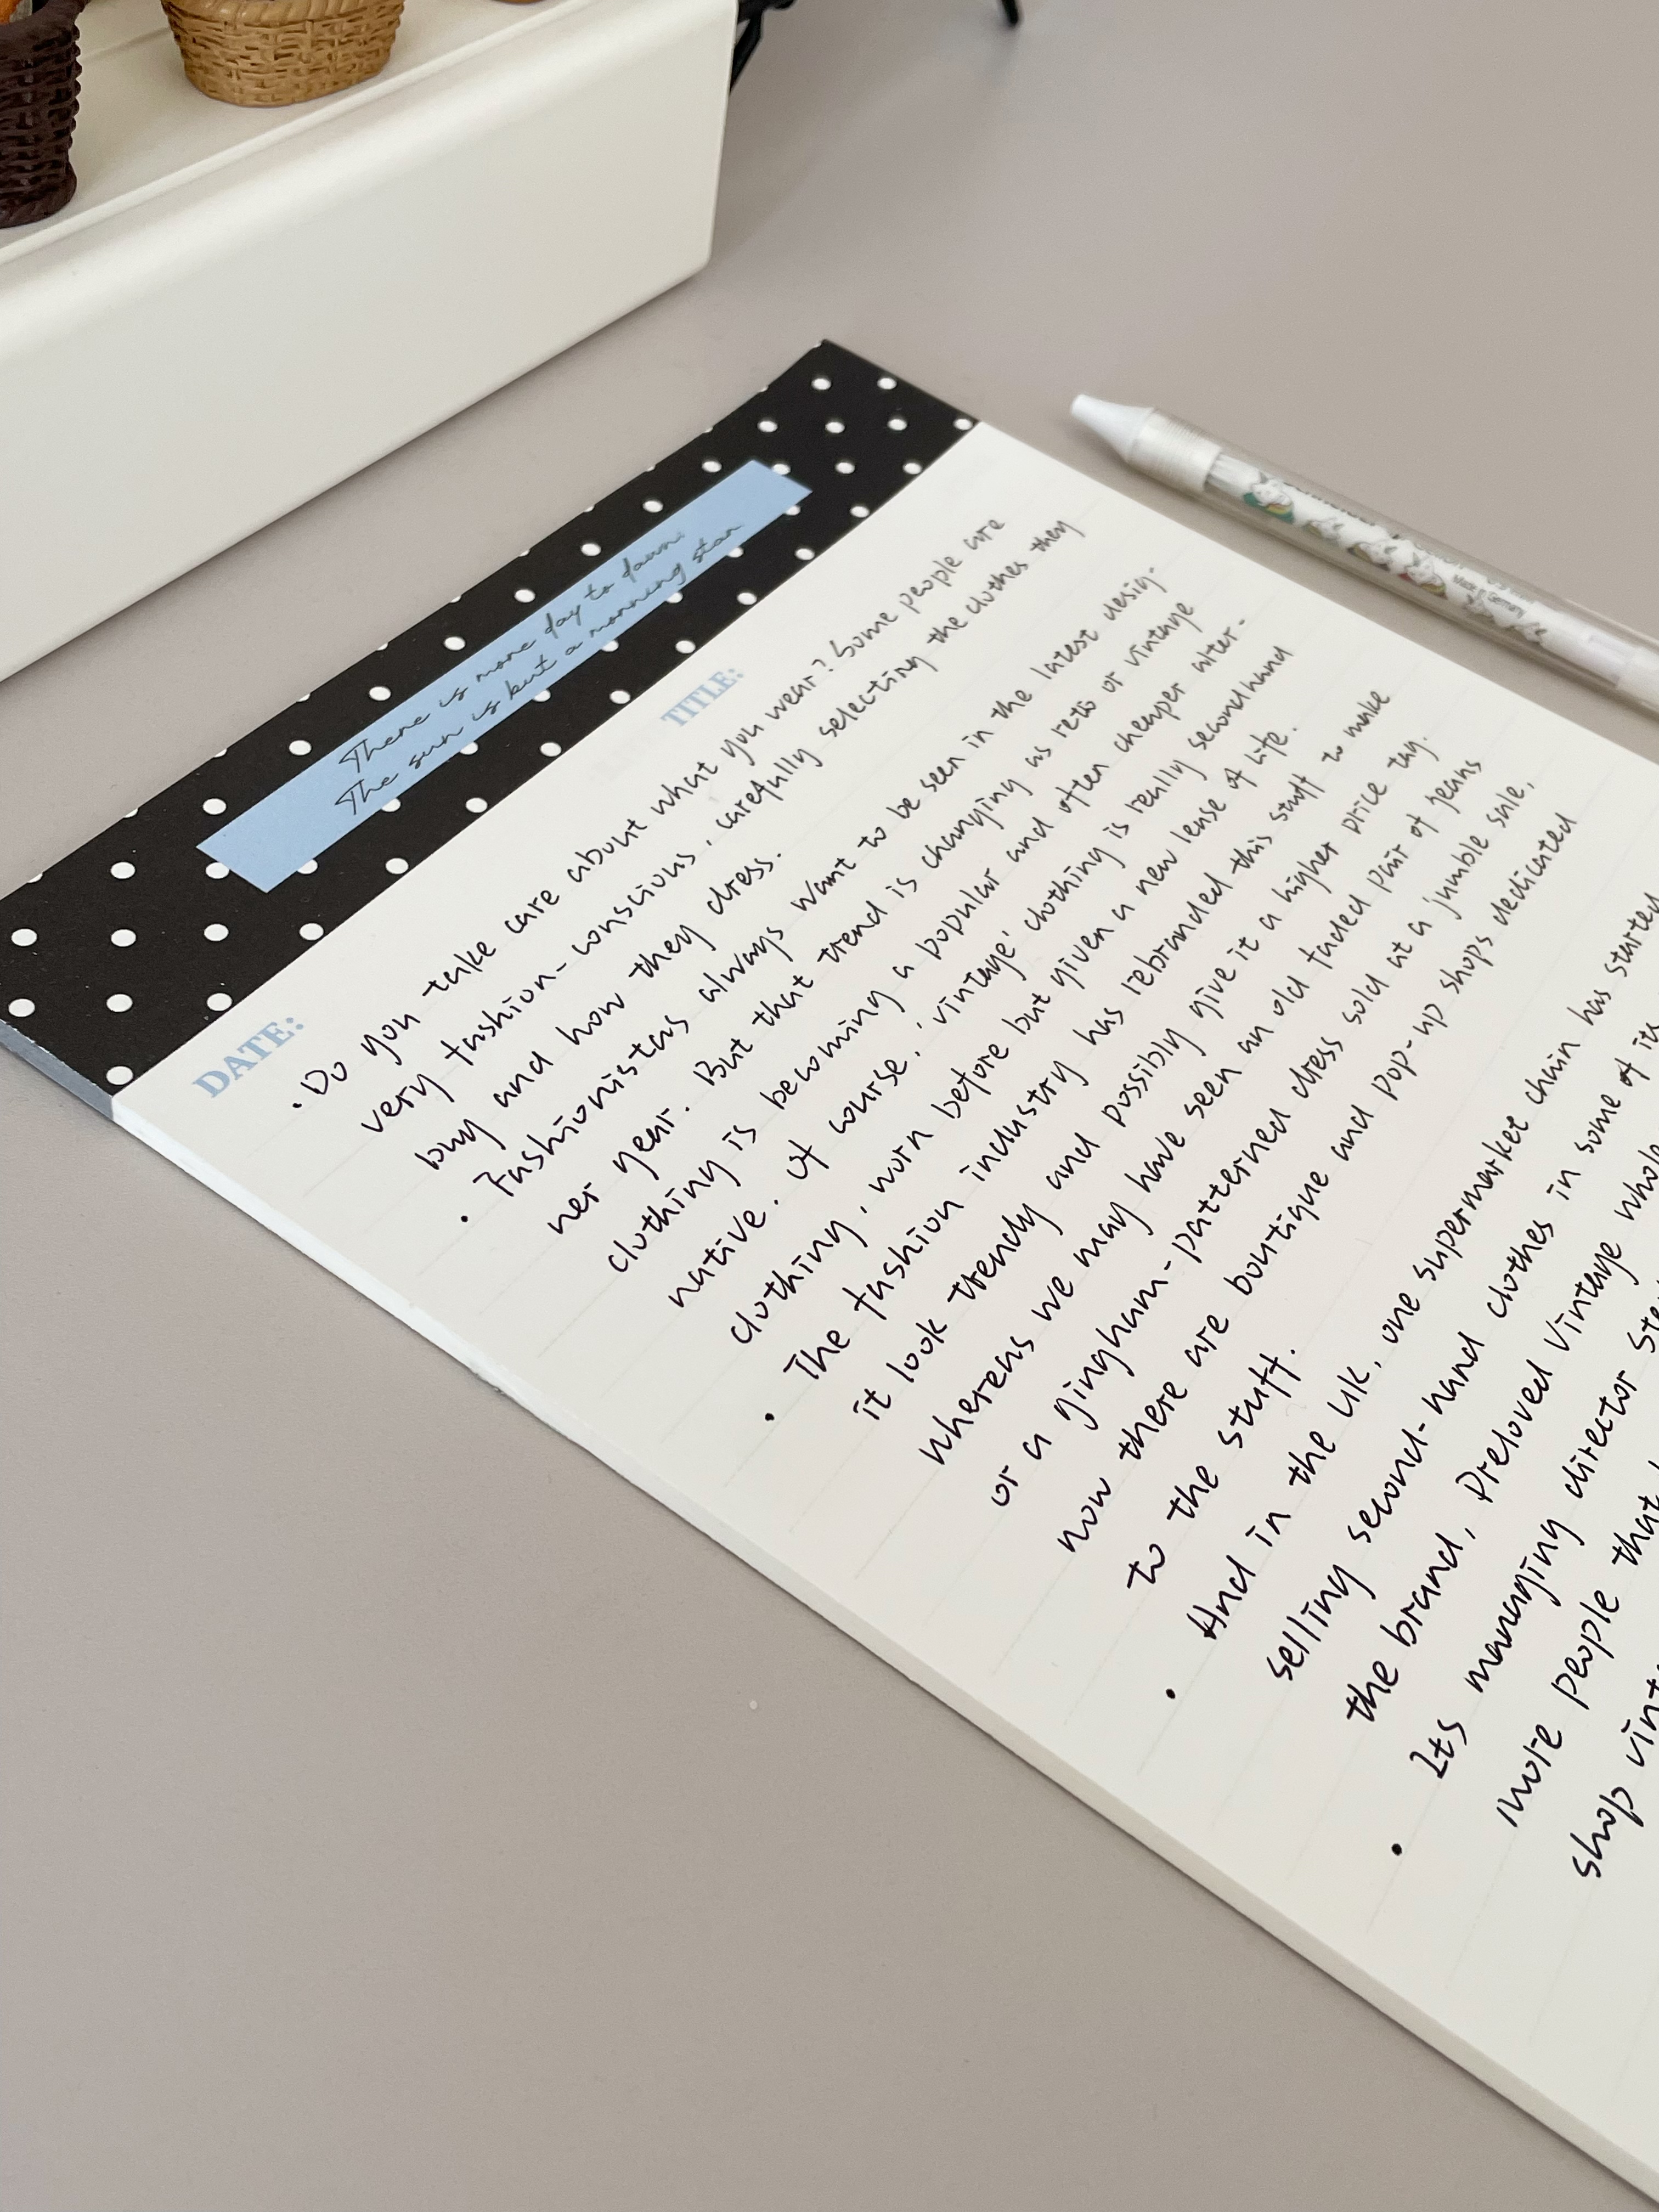 There is more day to dawn.
The sun is but a morning star
DATE:
TITLE:
· Do you take care about what you wear? Some people are
very fashion-conscious, carefully selecting the clothes they
buy and how they dress.
· Fashionistas always want to be seen in the latest desig-
ner gear. But that trend is changing as retro or vintage
clothing is becoming a popular and often cheaper alter-
native. Of course, 'vintage' clothing is really secondhand
clothing, worn before but given a new lease of life.
· The fashion industry has rebranded this stuff to make
it look trendy and possibly give it a higher price tag.
whereas we may have seen an old faded pair of jeans
or a gingham-patterned dress sold at a jumble sale,
now there are boutique and pop-up shops dedicated
to the stuff.
· And in the UK, one supermarket chain has started
selling second-hand clothes in some of its
the brand, Preloved Vintage whole
· Its managing director
more people that
shop
Made in Germany